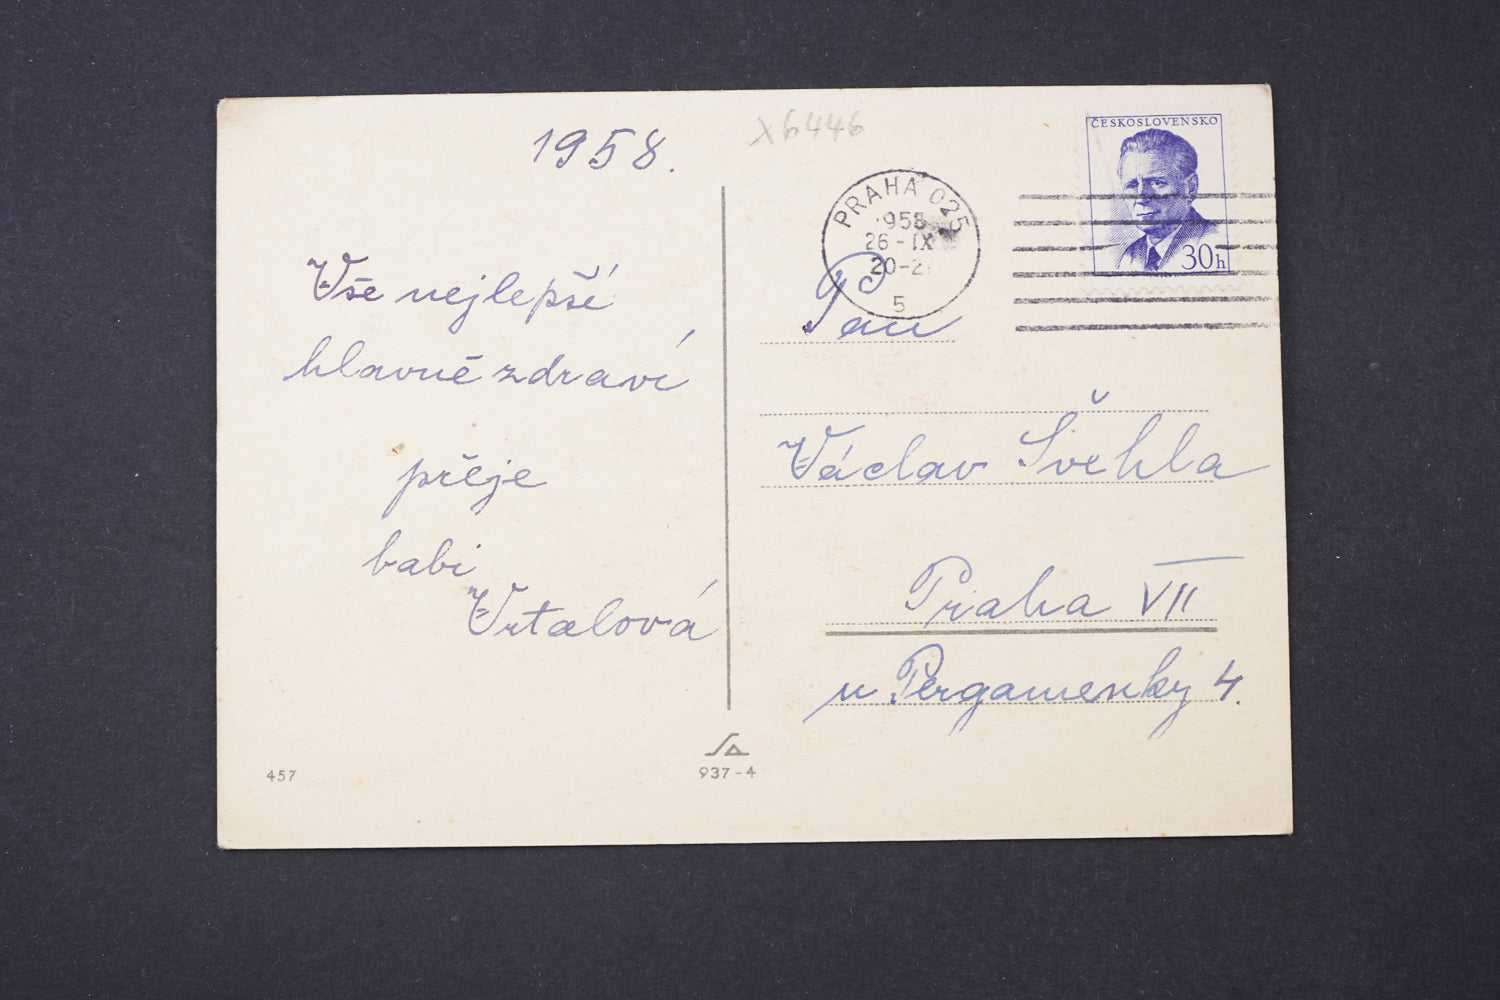 1958.
x6446
ČESKOSLOVENSKO
30h
PRAHA 025
958
26-IX
20-2
5
Vše nejlepší
hlavně zdraví
přeje
babi
Vrtalová
Pan
Václav Švehla
Praha VII
u Pergamenky 4.
457
937-4